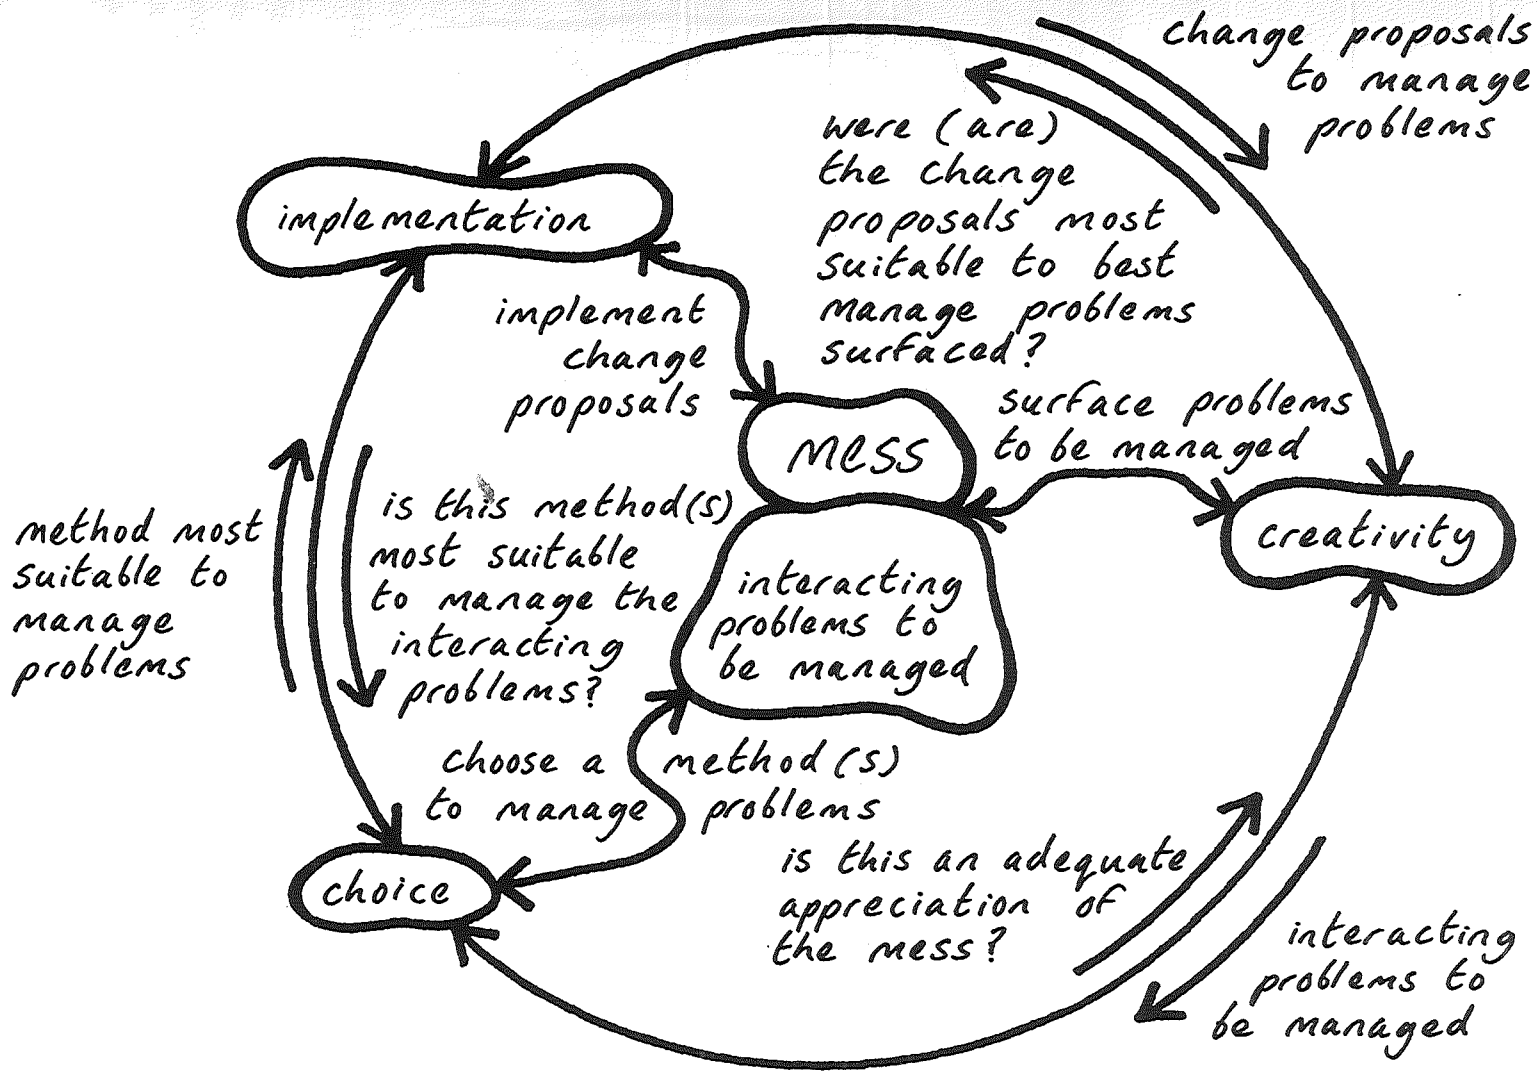 change proposals
to manage
problems
were (are)
the change
proposals most
suitable to best
manage problems
surfaced?
implementation
implement
change
proposals
surface problems
to be managed
mess
creativity
method most
suitable to
manage
problems
is this method(s)
most suitable
to manage the
interacting
problems?
interacting
problems to
be managed
choose a method(s)
to manage problems
choice
is this an adequate
appreciation of
the mess?
interacting
problems to
be managed